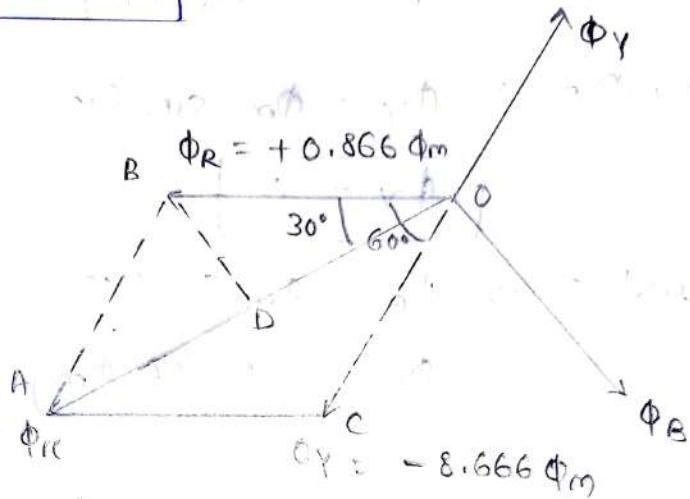 ΦY
ΦR = +0.866 Φm
B
O
30°
60°
D
A
C
ΦR
ΦB
ΦY = -8.666 Φm